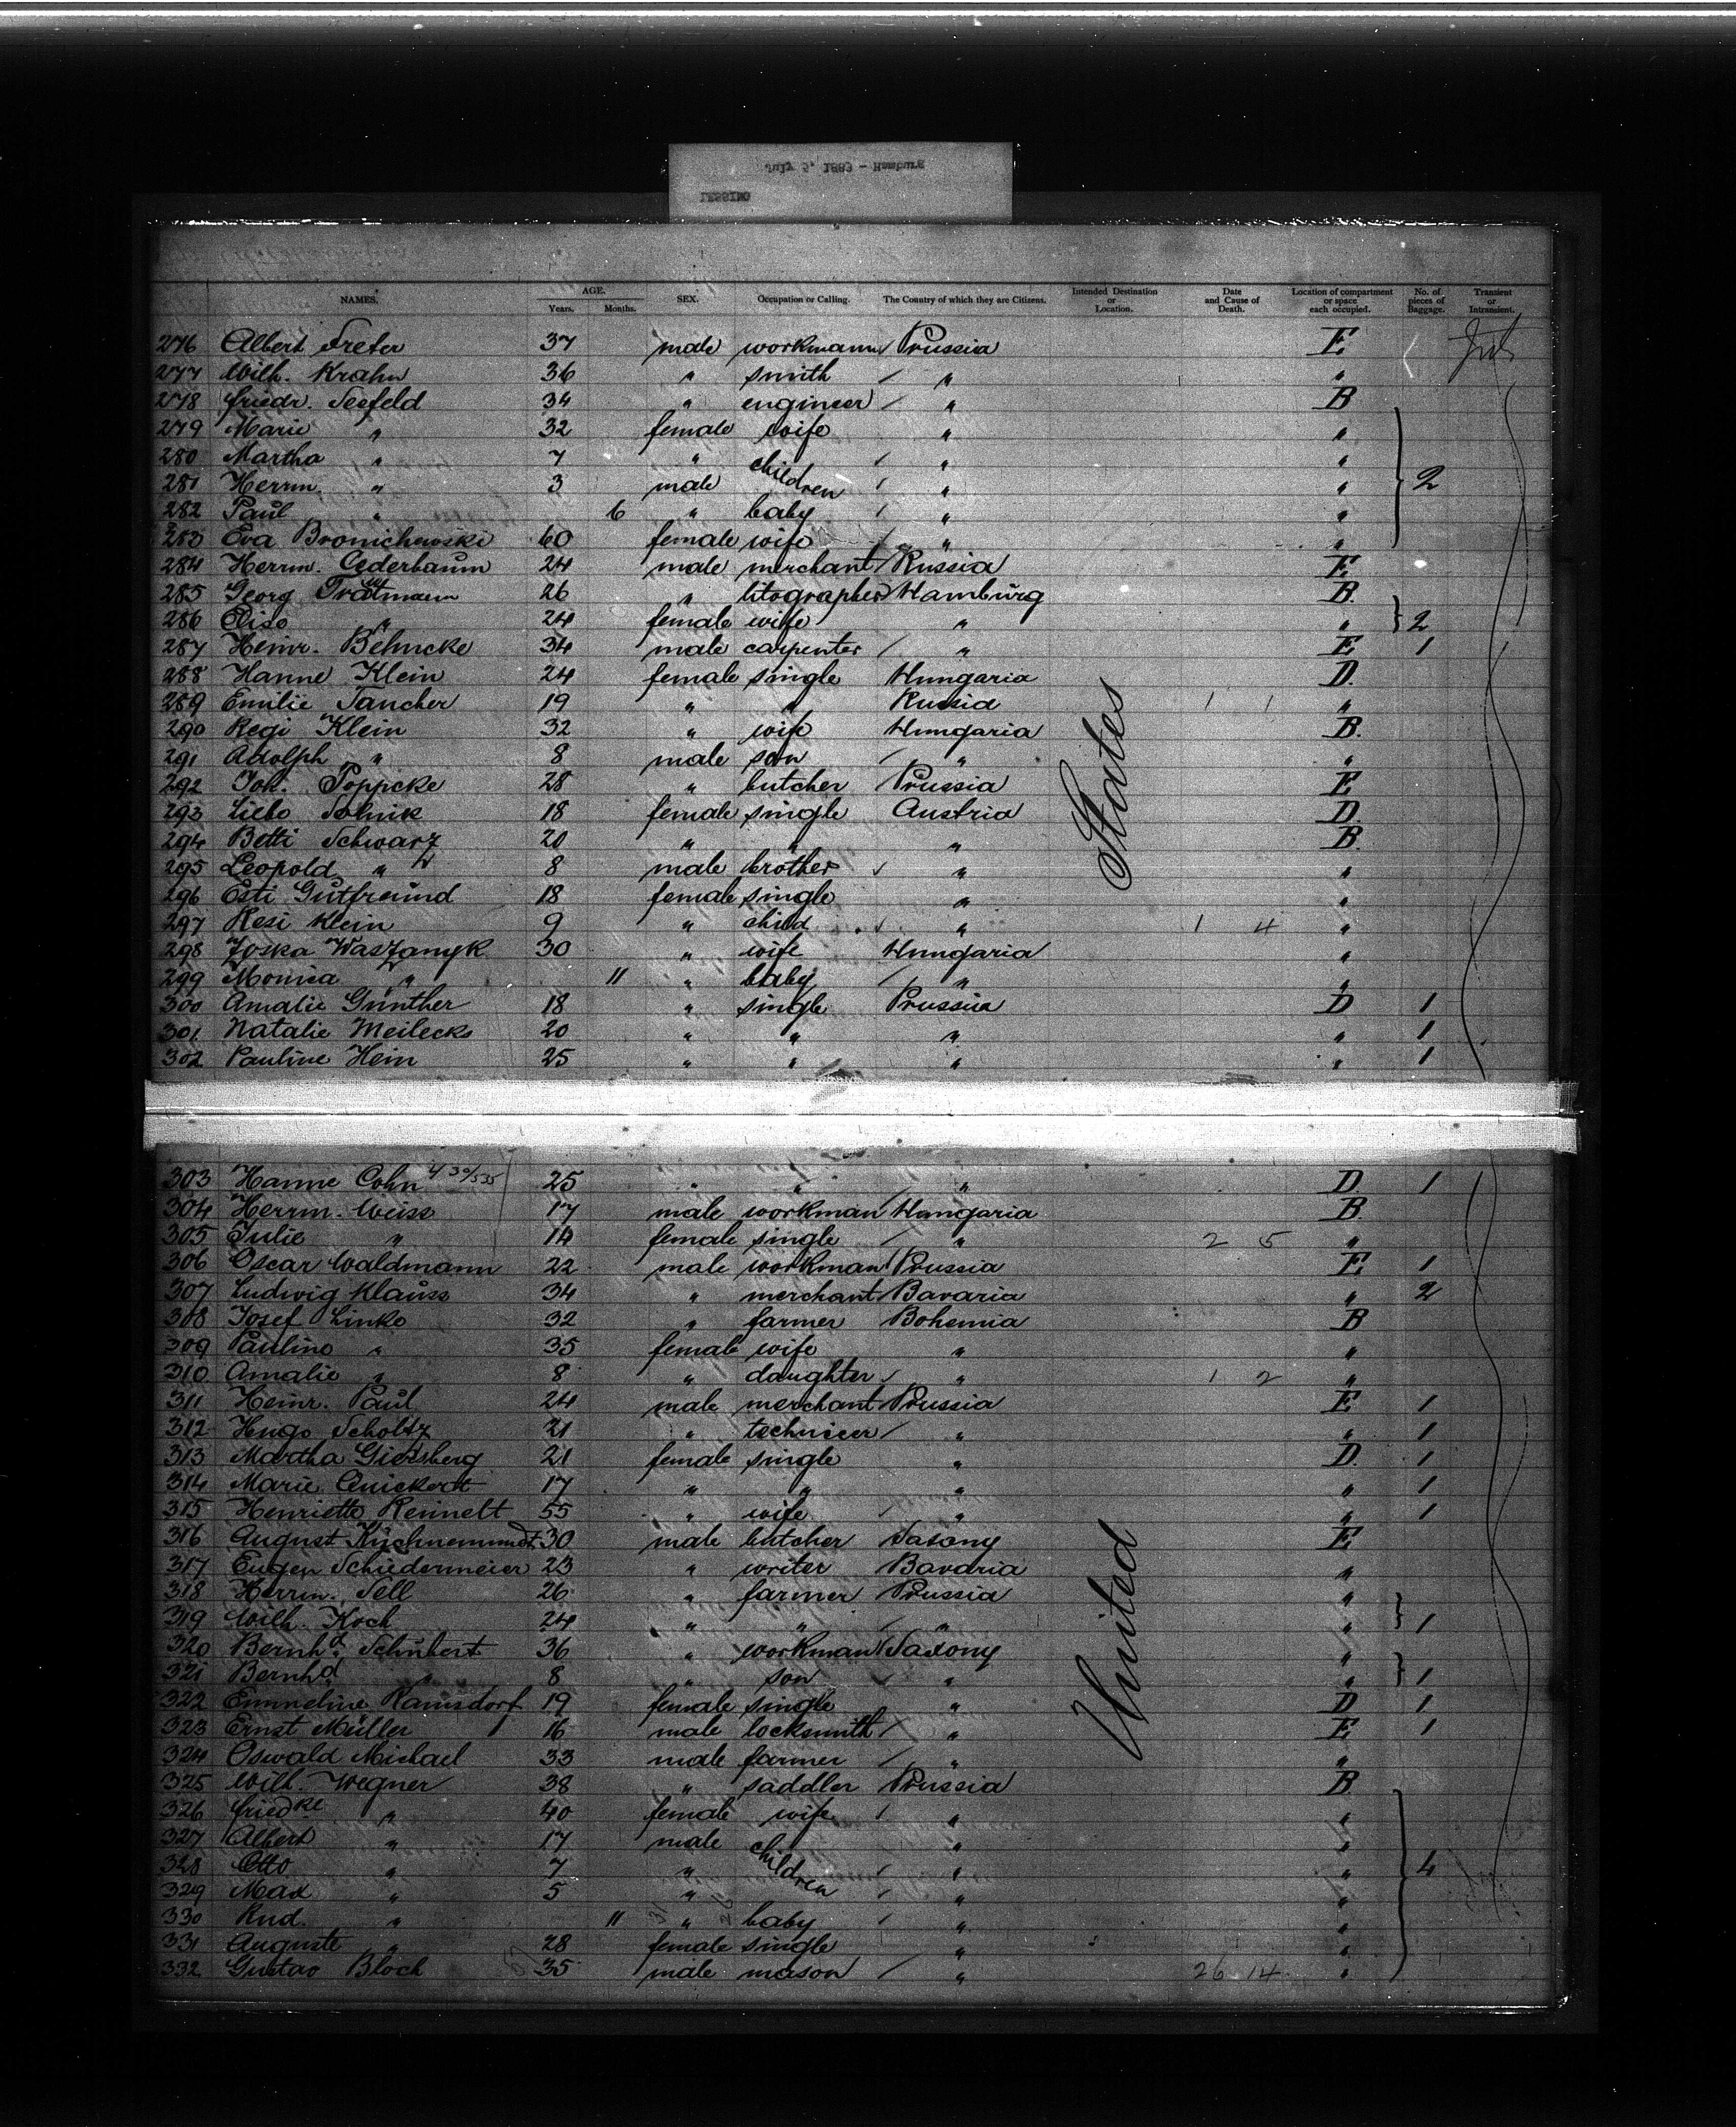 July 5, 1883 - Hamburg
LESSING
NAMES. AGE. Years. Months. SEX. Occupation or Calling. The Country of which they are Citizens. Intended Destination or Location. Date and Cause of Death. Location of compartment or space each occupied. No. of pieces of Baggage. Transient or Intransient.
276 Albert Freter 37 male workmann Prussia E
277 Wilh. Krahn 36 " smith / " "
278 Friedr. Seefeld 34 " engineer / " B
279 Marie " 32 female wife " "
280 Martha " 7 " children / " "
281 Herrm. " 3 male / " " 2
282 Paul " 6 " baby / " "
283 Eva Bronichewski 60 female wife " "
284 Herrm. Cederbaum 24 male merchant / Russia E
285 Georg 26 " litographer Hamburg B.
286 Elise " 24 female wife " " 2
287 Heinr. Behncke 34 male carpenter / " E 1
288 Hanne Klein 24 female single Hungaria D.
289 Emilie Tancher 19 " " Russia 1 1 "
290 Regi Klein 32 " wife Hungaria B.
291 Adolph " 8 male son / " "
292 Joh. Poppcke 28 " butcher Prussia E
293 Liebe Solnik 18 female single Austria D.
294 Betti Schwarz 20 " " " B.
295 Leopold " 8 male brother / " "
296 Esti Gutfreund 18 female single " "
297 Resi Klein 9 " child / " 1 4 "
298 Joska Waszanyk 30 " wife Hungaria "
299 Monica " 11 " baby / " "
300 Amalie Günther 18 " single Prussia D 1
301 Natalie Meilecke 20 " " " " 1
302 Pauline Hein 25 " " " " 1
States
303 Hanne Cohn 25 " " / " D 1
304 Herrm. Weiss 17 male workman / Hungaria B.
305 Julie " 14 female single / " 2 5 "
306 Oscar Waldmann 22 male workman / Prussia E 1
307 Ludwig Klauss 34 " merchant / Bavaria " 2
308 Josef Linke 32 " farmer Bohemia B
309 Pauline " 35 female wife " "
310 Amalie " 8 " daughter / " 1 2 "
311 Heinr. Paul 24 male merchant Prussia E 1
312 Hugo Scholtz 21 " technicer / " " 1
313 Martha Giessberg 21 female single " D. 1
314 Marie Quickert 17 " " " " 1
315 Henriette Rennelt 55 " wife / " " 1
316 August Küchnemundt 30 male butcher Saxony E
317 Eugen Schiedermeier 23 " writer Bavaria "
318 Herrm. Sell 26 " farmer Prussia "
319 Wilh. Koch 24 " " / " " 1
320 Bernhd. Schubert 36 " workman / Saxony "
321 Bernhd. " 8 " son / " " 1
322 Emmeline Ramsdorf 19 female single " D 1
323 Ernst Müller 16 male locksmith / " E 1
324 Oswald Michael 33 male farmer / " "
325 Wilh. Wegner 38 " saddler Prussia B.
326 Friedke " 40 female wife / " "
327 Albert " 17 male children " "
328 Otto " 7 " / " " 4
329 Max " 5 " / " "
330 Rud. " 11 " baby / " "
331 Auguste " 28 female single " "
332 Gustav Bloch 35 male mason / " 26 14 "
United